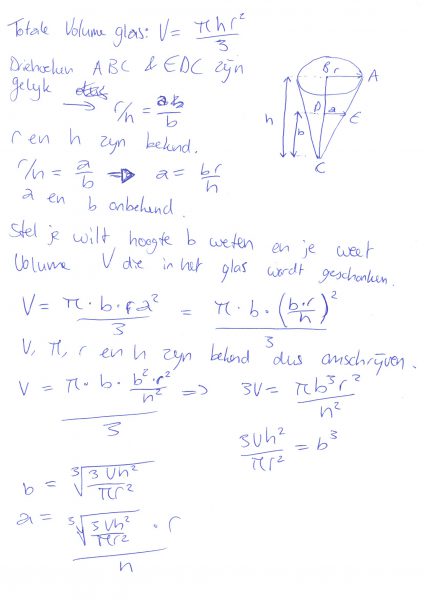 Totale Volume glas: V = πhr²/3
Driehoeken ABC & EDC zijn
gelijk → r/h = a/b
r en h zijn bekend.
r/h = a/b ⇒ a = br/h
a en b onbekend.
Stel je wilt hoogte b weten en je weet
Volume V die in het glas wordt geschonken.
V = π · b · a²/3 = π · b · (b·r/h)²/3
V, π, r en h zijn bekend dus omschrijven.
V = π · b · b²·r²/h² / 3 ⇒ 3V = πb³r²/h²
3Vh²/πr² = b³
b = ∛(3Vh²/πr²)
a = ∛(3Vh²/πr²) · r / h
B r A
h D a E
b
C